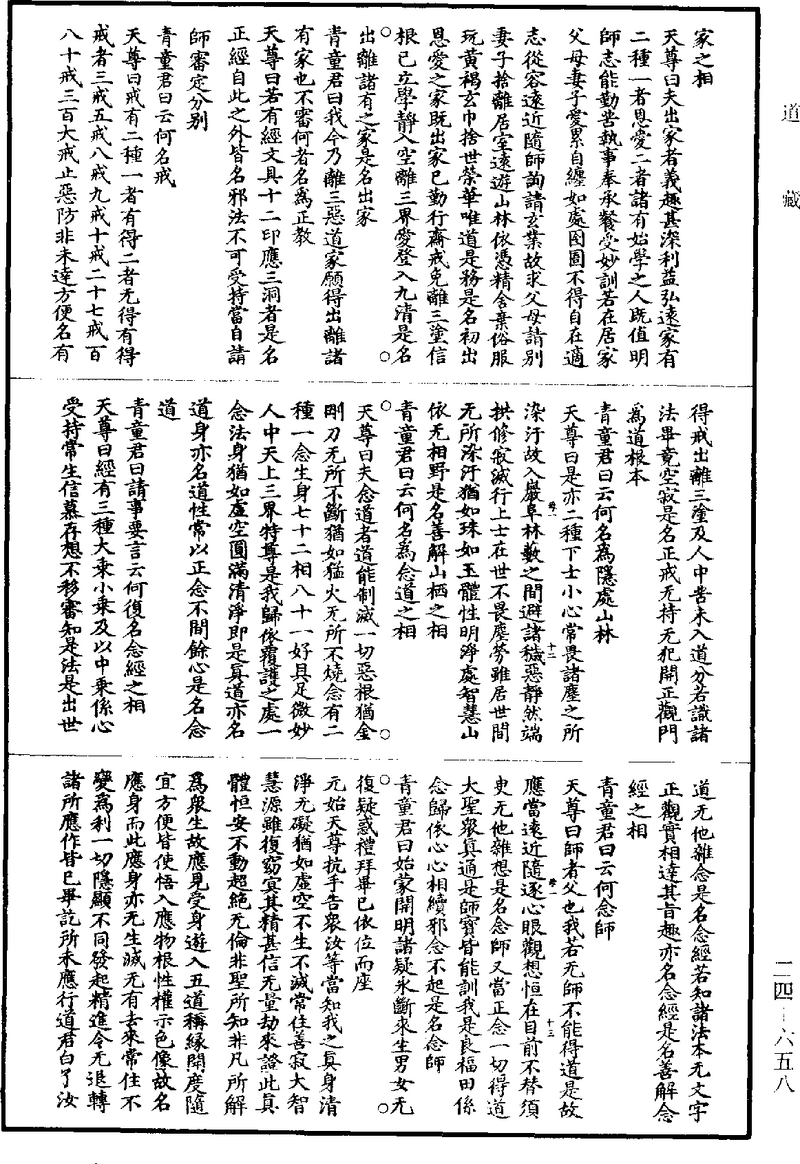 道藏
家之相
天尊曰夫出家者義趣甚深利益弘遠家有
二種一者恩愛二者諸有始學之人既值明
師志能勤苦執事奉承餐受妙訓若在居家
父母妻子愛累自纏如處囹圄不得自在適
志從容遠近隨師詢請玄業故求父母請別
妻子捨離居室遠遊山林依憑精舍棄俗服
玩黃褐玄巾捨世榮華唯道是務是名初出
恩愛之家既出家已勤行齋戒免離三塗信
根已立學靜入空離三界愛登入九清是名
出離諸有之家是名出家
青童君曰我今乃離三惡道家願得出離諸
有家也不審何者名為正教
天尊曰若有經文具十二印應三洞者是名
正經自此之外皆名邪法不可受持當自請
師審定分別
青童君曰云何名戒
天尊曰戒有二種一者有得二者无得有得
戒者三戒五戒八戒九戒十戒二十七戒百
八十戒三百大戒止惡防非未達方便名有
得戒出離三塗及人中苦未入道分若識諸
法畢竟空寂是名正戒无持无犯開正觀門
為道根本
青童君曰云何名為隱處山林
天尊曰是亦二種下士小心常畏諸塵之所
染汙故入巖阜林藪之間避諸穢惡靜然端
拱修寂滅行上士在世不畏塵勞雖居世間
无所染汙猶如珠如玉體性明淨處智慧山
依无相野是名善解山栖之相
青童君曰云何名為念道之相
天尊曰夫念道者道能制滅一切惡根猶金
剛刀无所不斷猶如猛火无所不燒念有二
種一念生身七十二相八十一好具足微妙
人中天上三界特尊是我歸依覆護之處一
念法身猶如虛空圓滿清淨即是真道亦名
道身亦名道性常以正念不間餘心是名念
道
青童君曰請事要言云何復名念經之相
天尊曰經有三種大乘小乘及以中乘係心
受持常生信慕存想不移審知是法是出世
道无他雜念是名念經若知諸法本无文字
正觀實相達其旨趣亦名念經是名善解念
經之相
青童君曰云何念師
天尊曰師者父也我若无師不能得道是故
應當遠近隨逐心眼觀想恒在目前不替須
臾无他雜想是名念師又當正念一切得道
大聖眾真通是師寶皆能訓我是良福田係
念歸依心心相續邪念不起是名念師
青童君曰始蒙開明諸疑氷斷來生男女无
復疑惑禮拜畢已依位而座
元始天尊抗手告眾汝等當知我之真身清
淨无礙猶如虛空不生不滅常住善寂大智
慧源雖復窈冥其精甚信无量劫來證此真
體恒安不動超絕无倫非聖所知非凡所解
為眾生故應見受身遊入五道稱緣開度隨
宜方便皆使悟入應物根性權示色像故名
應身而此應身亦无生滅无有去來常住不
變為利一切隱顯不同發起精進令无退轉
諸所應作皆已畢訖所未應行道君白了汝
卷一
十二
卷一
十三
二四－六五八